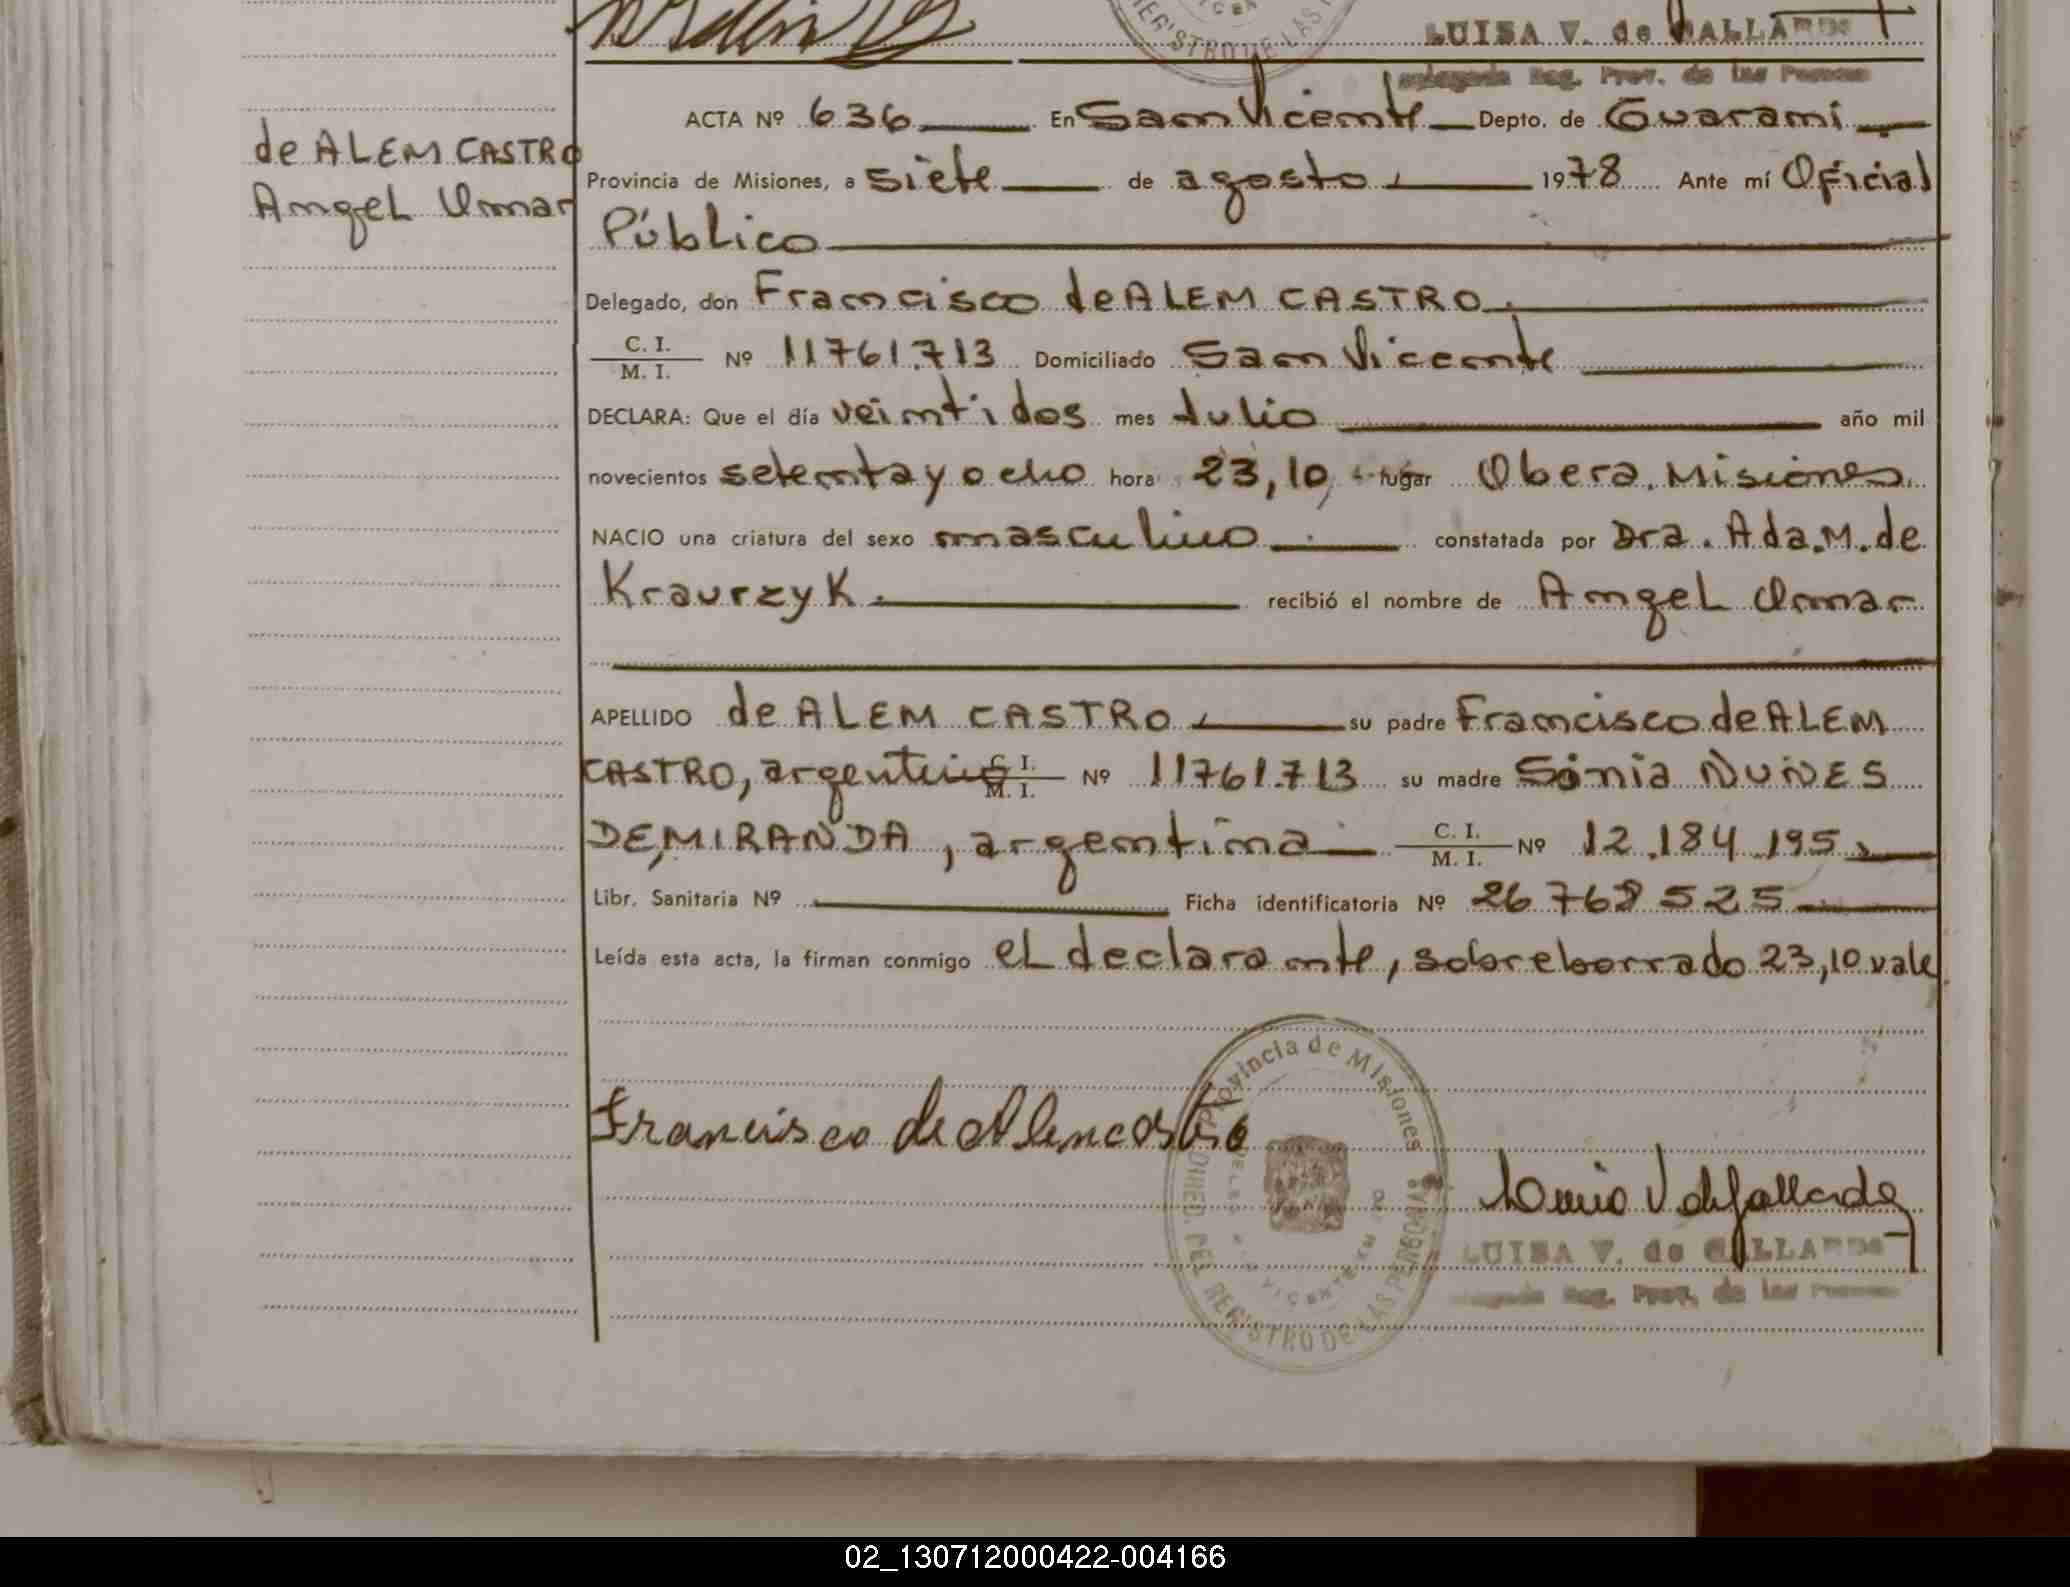 LUISA V. de GALLARDO
Delegada Reg. Prov. de las Personas
REGISTRO DE LAS
de ALEM CASTRO
Angel Omar
ACTA Nº 636 En San Vicente Depto. de Guaraní
Provincia de Misiones, a siete de agosto 1978 Ante mí Oficial
Público
Delegado, don Francisco de ALEM CASTRO.
C. I.
M. I. Nº 11761.713 Domiciliado San Vicente
DECLARA: Que el día veinti dos mes Julio año mil
novecientos setenta y ocho hora 23,10, lugar Obera. Misiones
NACIO una criatura del sexo masculino constatada por Dra. Ada.M. de
Kraurzyk. recibió el nombre de Angel Omar
APELLIDO de ALEM CASTRO su padre Francisco de ALEM
CASTRO, argentino C. I. M. I. Nº 11761.713 su madre Sónia NUNES
DE MIRANDA, argentina C. I. M. I. Nº 12.184.195
Libr. Sanitaria Nº Ficha identificatoria Nº 26 768 525
Leída esta acta, la firman conmigo el declarante, sobreborrado 23,10 vale
Francisco de Alencastro
Provincia de Misiones
DIREC. DEL REGISTRO DE LAS PERSONAS
Luisa V de Gallardo
LUISA V. de GALLARDO
Delegada Reg. Prov. de las Personas
02_130712000422-004166